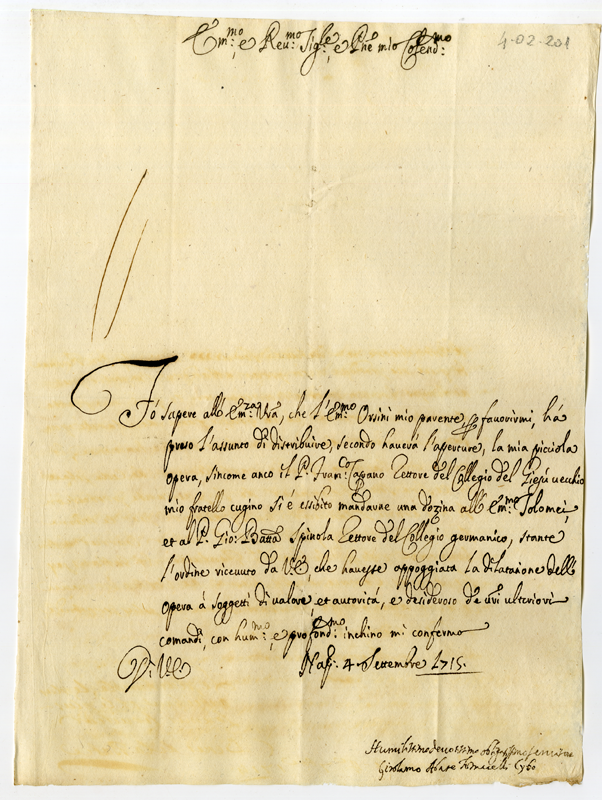 Em:mo, e Reu:mo Sig:re, e Pne mio Colend:mo
4-02-201
Fó sapere all' Em:za Vra, che l'Em:mo Orsini mio parente p favorirmi, há
preso l'assunto di distribuire, secondo haverá l'aperture, la mia picciola
opera, sincome anco il P. Fran:co Rettore del Collegio del Giesú vecchio
mio fratello cugino si é essibito mandarne una dozina all' Em:mo Tolomei,
et al P. Gio: Batta Spinola Rettore del Collegio germanico, stante
l'ordine ricevuto da V:E, che havesse appoggiata la dilataione dell'
opera á soggetti di valore, et autoritá, e desideroso de uri ulteriori
comandi, con hum:mo, e profond:mo inchino mi confermo
Di V:E
Nap: 4 Settembre 1715.
Humilissimo devotissimo
Girolamo Abate Cybo